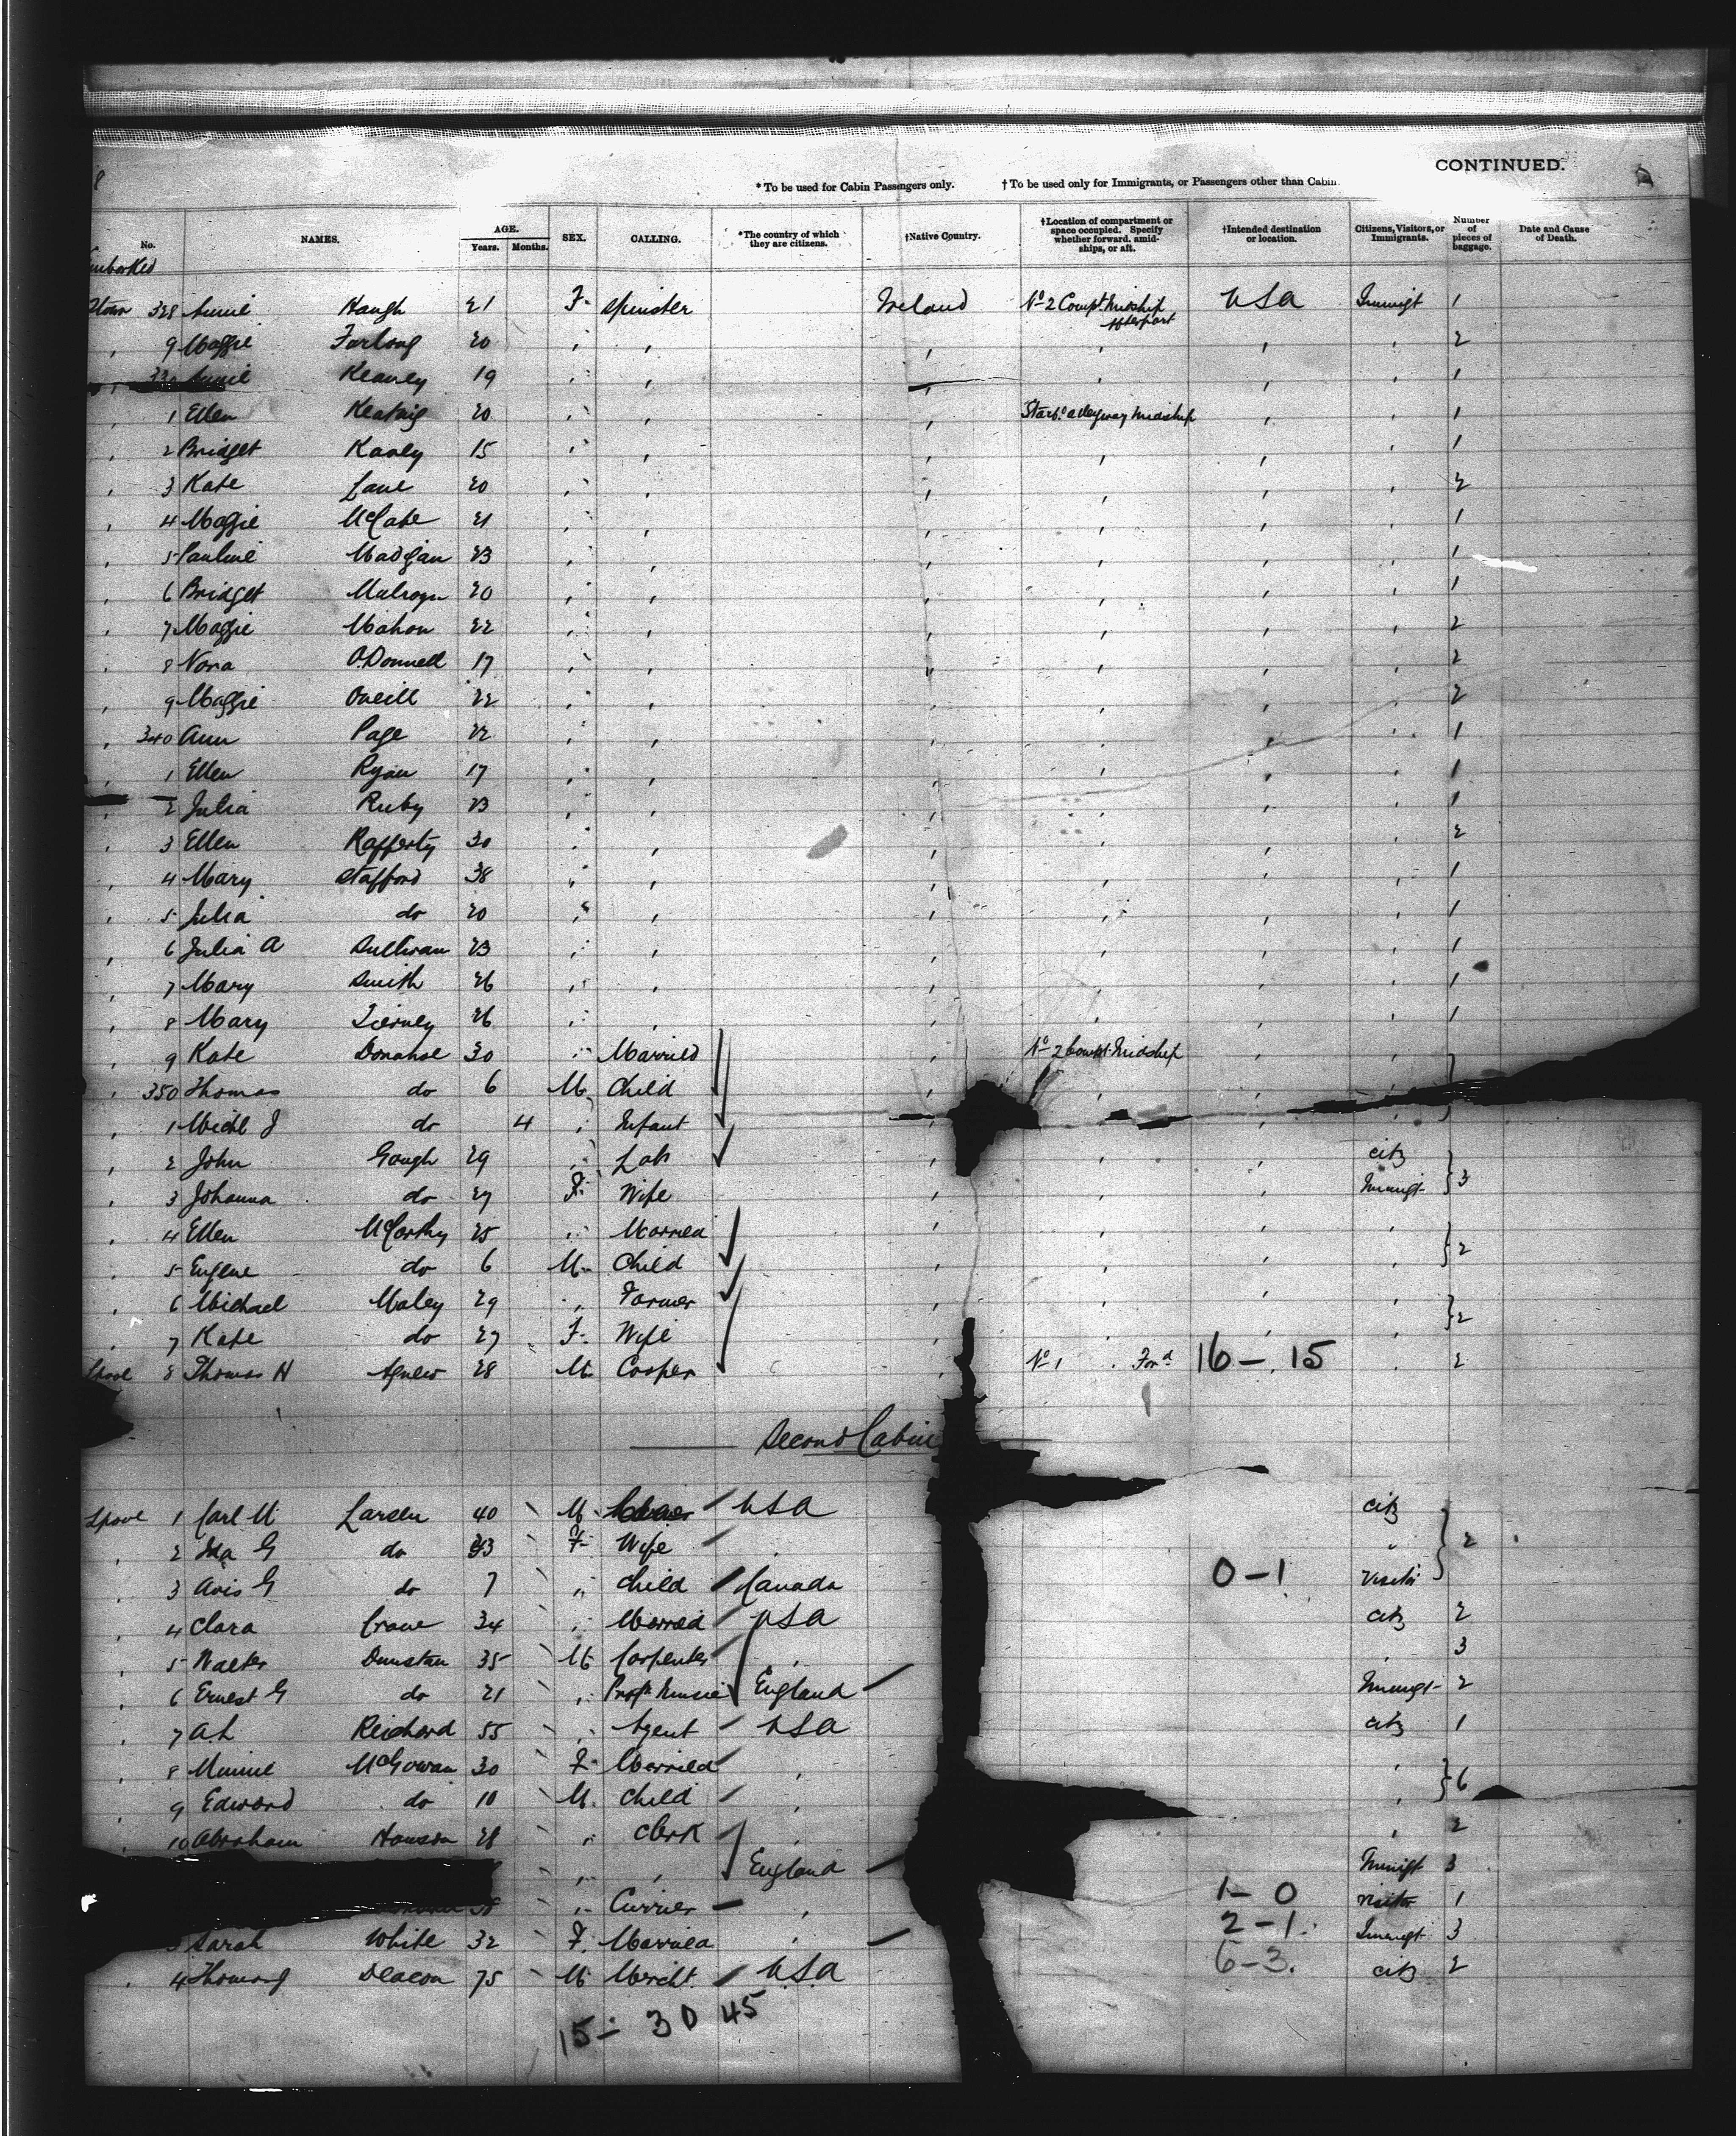 CONTINUED.
* To be used for Cabin Passengers only. † To be used only for Immigrants, or Passengers other than Cabin.
No. NAMES. AGE. Years. Months. SEX. CALLING. *The country of which they are citizens. †Native Country. †Location of compartment or space occupied. Specify whether forward, amidships, or aft. †Intended destination or location. Citizens, Visitors, or Immigrants. Number of pieces of baggage. Date and Cause of Death.
Embarked
Qtown 328 Annie Haugh 21 F. Spinster Ireland No 2 Compt. Midship afterpart USA Immigt 1
, 9 Maggie Furlong 20 " , , , , , 2
330 Annie Keaney 19 " , , , , , 1
, 1 Ellen Keating 20 " , , Starb'd alleyway Midship , , 1
, 2 Bridget 15 " , , , , , 1
, 3 Kate Lane 20 " , , , , , 2
, 4 Maggie McCabe 21 " , , , , , 1
, 5 Pauline Madgan 23 " , , , , , 1
, 6 Bridget 20 " , , , , , 1
, 7 Maggie Mahon 22 " , , , , , 2
, 8 Nora O.Donnell 17 " , " , , , 2
, 9 Maggie Oneill 22 " , , , , , 2
, 340 Ann Page 22 " , , , , , 1
, 1 Ellen Ryan 17 " , , , , , 1
, 2 Julia Ruby 23 " , , , , , 1
, 3 Ellen Rafferty 30 " , , , , , 2
, 4 Mary Stafford 38 " , , , , , 1
, 5 Julia do 20 " , , , , , 1
, 6 Julia A Sullivan 23 " , , , , , 1
, 7 Mary Smith 26 " , , , , , 1
, 8 Mary Tierney 26 " , , , , , 1
, 9 Kate Donahoe 30 " Married , No 2 Compt. Midship , ,
, 350 Thomas do 6 M. Child , , ,
, 1 Michl J do 4 " Infant , , ,
, 2 John Gough 29 " Lab , , , citz } 3
, 3 Johanna do 27 F. Wife , , , Immigt
, 4 Ellen McCarthy 25 " Married , , , , } 2
, 5 Eugene do 6 M. Child , , , ,
, 6 Michael Maley 29 " Farmer , , , , } 2
, 7 Kate do 27 F. Wife , , , ,
Lpool 8 Thomas H Agnew 28 M. Cooper , No 1 Ford 16 – 15 , 2
Second Cabin
Lpool 1 Carl M Larsen 40 M. USA citz } 2
, 2 Ida G do F. Wife , "
, 3 Avis G do 7 " Child Canada 0–1 Visitor
, 4 Clara Crane 34 " Married USA citz 2
, 5 Walter Dunstan 35 M. Carpenter , , 3
, 6 Ernest G do 21 " Prof. Music England Immigt 2
, 7 A.L Reichard 55 , Agent USA citz 1
, 8 Minnie McGowan 30 F. Married , , } 6
, 9 Edward do 10 M. Child , ,
10 Abraham 28 " Clerk , , 2
" , England Immigt 3
38 " Currier , 1–0 visitor 1
3 Sarah White 32 F. Married , 2–1. Immigt 3
, 4 Thomas J Deacon 75 M. Mercht. USA 6–3. citz 2
15 – 30 45